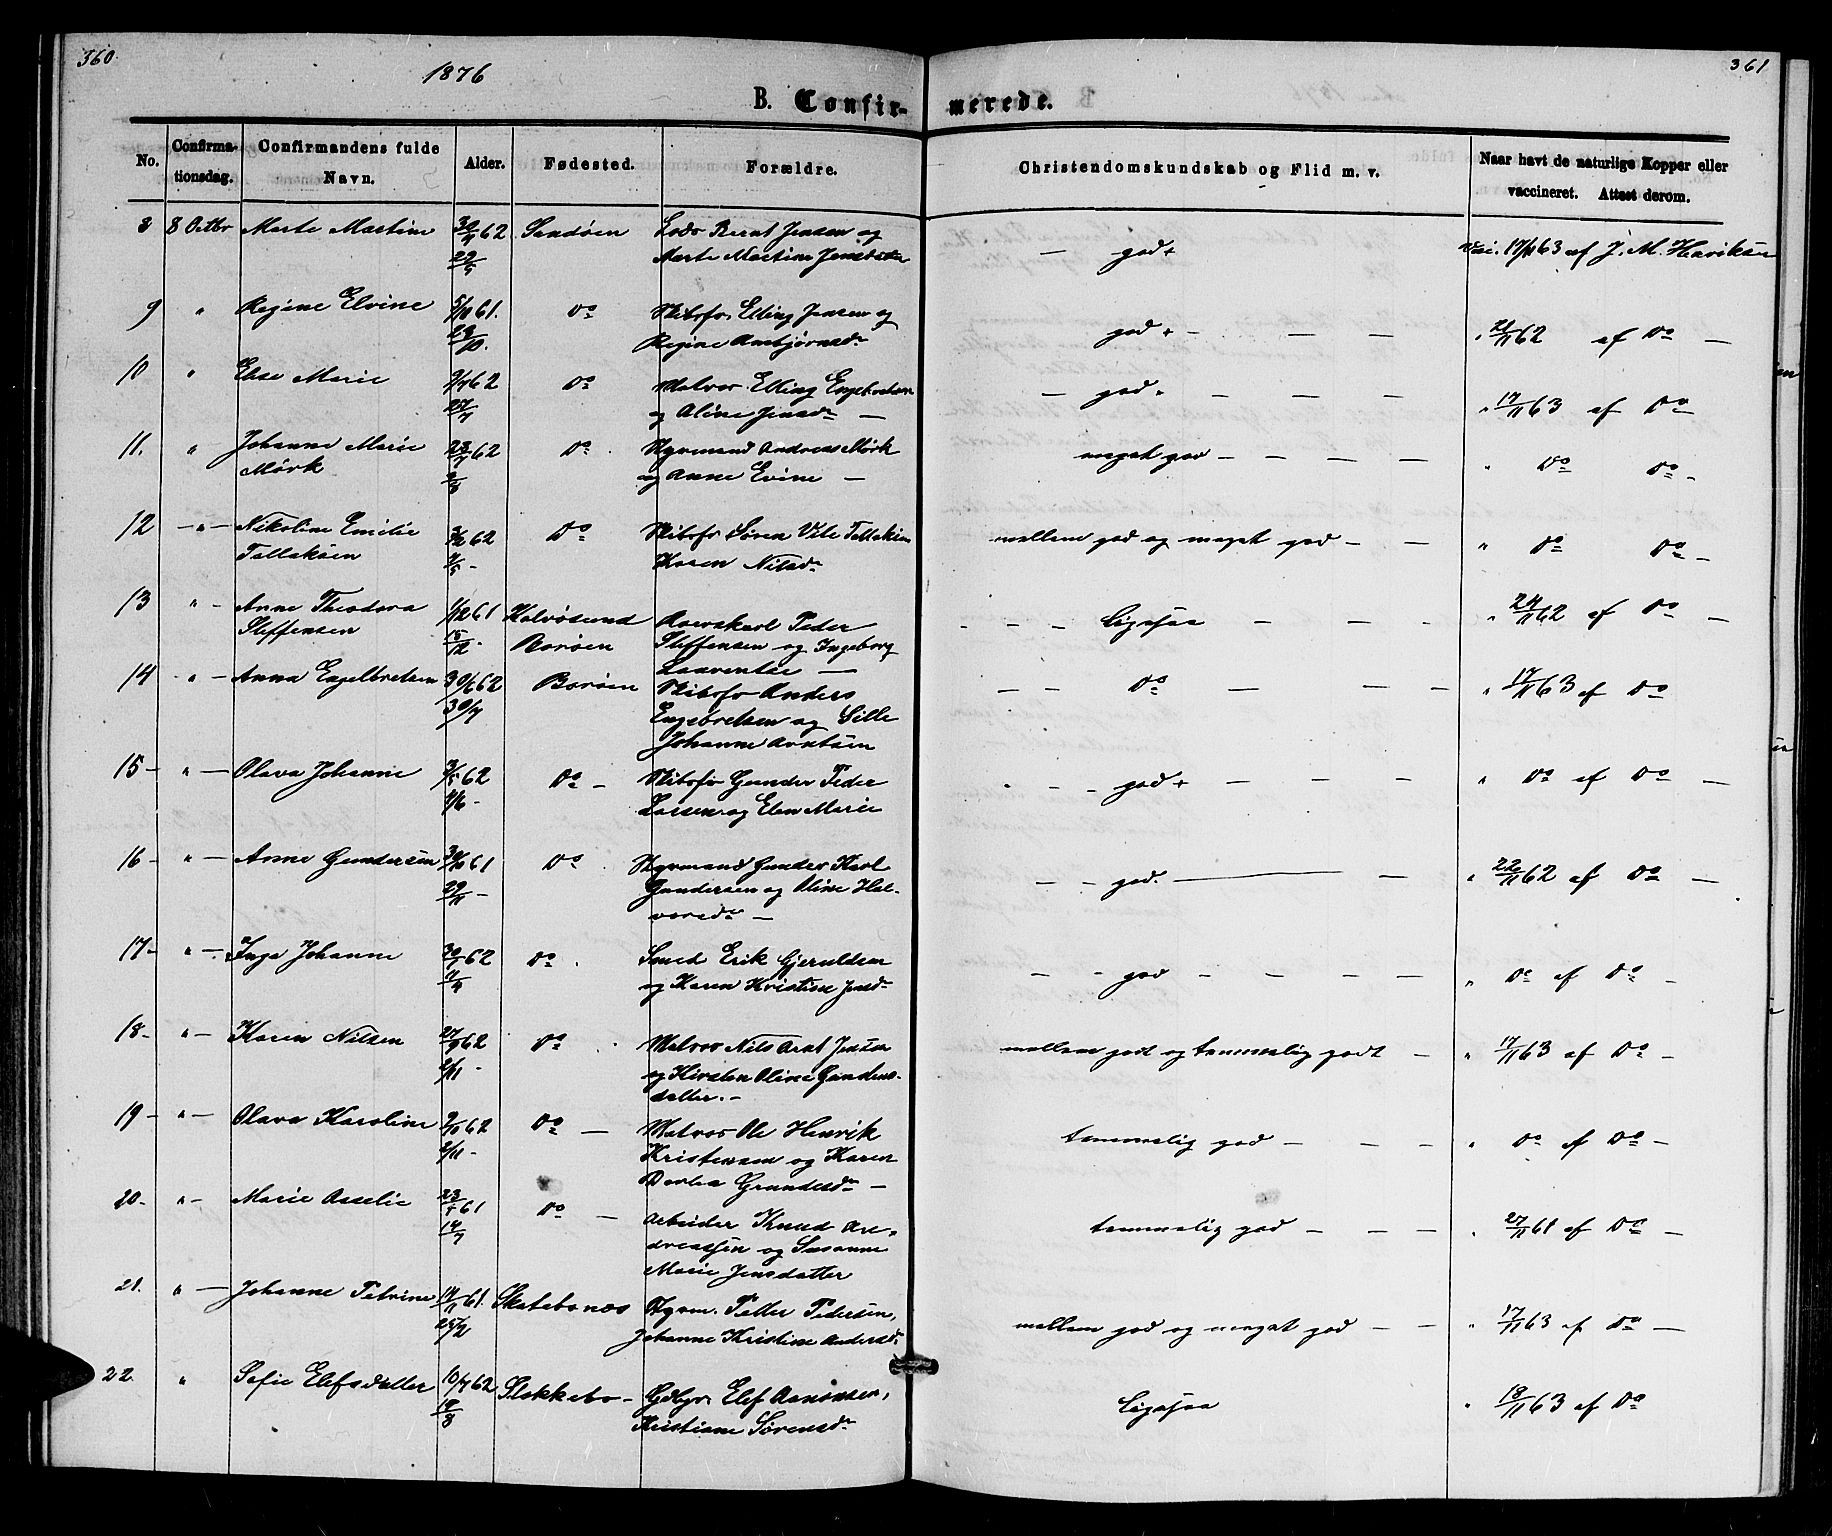 360.
361
1876
B. Confir- merede.
No.
Confirma-
tionsdag.
Confirmandens fulde
Navn.
Alder.
Fødested.
Forældre.
Christendomskundskab og Flid m. v.
Naar havt de naturlige Kopper eller
vaccineret. Attest derom.
8 8 Octbr Marte Martine 62 Sandøen Lods Bernt Jensen og
Marte Martine — god +
17/11 63 af J. M. Henriksen
9 " Regine Elvine 5/10 61. Do Skibsfr. Elling Jensen og
Regine Ansbjørnsdr god + — — —
" 62 af Do —
10 " Else Marie 62 Do Matros Elling Engebretsen
27/7 og Aline Jensdr —
— god — — — " 17/11 63 af Do
11. " Johanne Marie 23/7 62 Do Styrmand Andreas Mørk
Mørk og Anne Evine —
meget god — — — — " Do Do —
12 — " — Nikoline Emilie 62 Do Skibsfr Søren Vile Tellaksen
Tellaksen Karen Nilsdr
mellem god og meget god — — " Do Do —
13 " — Anne Theodora 1/12 61 Kalvøsund
Steffensen 15/12 — Borøen Peder
Steffensen og Ingeborg
Laurentse —
— — — Ligesaa — — — " 24/11 62 af Do —
14 — " — Anna Engelbretsen 30/6 62 Borøen Skibsfr Anders
30/7 Engebretsen og Sille
Johanne
— — Do — — — " 17/11 63 af Do
15 — " — Olava Johanne 3/5 62 Do — Skibsfr Gunder Peder
Larsen og Elen Marie
— — god + — — — " Do af Do —
16 — " — Anne Gundersen 30/10 61 Do Styrmand Gunder Karl
— Gundersen og Oline Hal-
vorsdr —
— — god. — — " 22/11 62 af Do —
17 — " — Inga Johanne 62 Do Smed Erik Gjeruldsen
og Karen Kristine Jensdr
— — god — — — — " Do af Do —
18 — " — Karen Nilsen 62 Do Matros Nils Arnt Jensen
2/11 — og Kirsten Oline Gunders-
datter. —
mellem godt og temmelig godt — " 17/11 63 af Do —
19 — " — Olava Karoline 9/10 62 Do — Matros Ole Henrik
2/11 — Kristensen og Karen
Dorthea Gundersdr —
temmelig god — — — " Do af Do —
20 — " — Marie Aaselie 61 Do — Arbeider Knud An-
14/7 dreassen og Susanne
Marie Jensdatter
temmelig god — — — " 27/11 61 af Do —
21. " — Johanne Petrine 61. Skatebonæs Styrm. Petter Pedersen,
Johanne Kristine Andersdr
mellem god og meget god — — " 17/11 63 af Do —
22 " Sofie Elefsdatter 10/7 62 Stokkebo — Gdbgr. Elef Aanonsen,
Kristiane Sørensdr
Ligesaa " 18/11 63 af Do